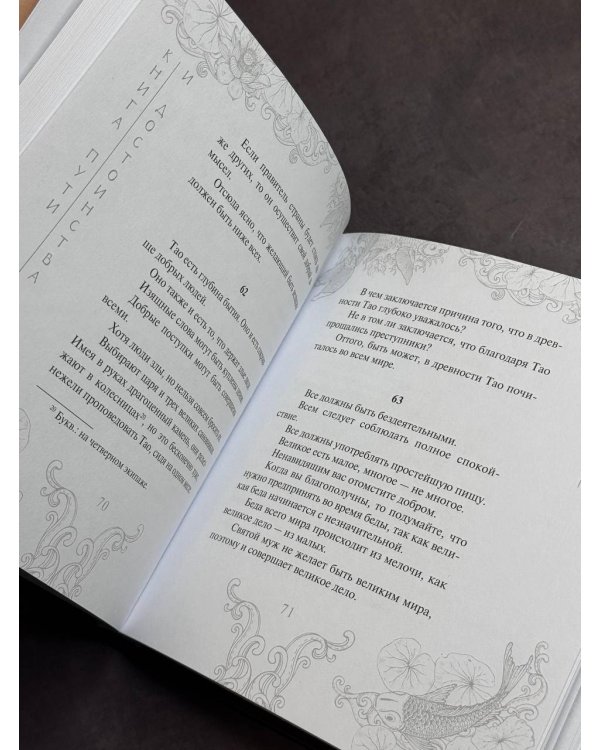 КНИГА ПУТИ
И ДОСТОИНСТВА
Если правитель страны будет
же других, то он осуществит свой
мысел.
Отсюда ясно, что желающий быть
должен быть ниже всех.
62
Тао есть глубина бытия. Оно
ше добрых людей.
Оно также и есть то, что держит
Изящные слова могут быть куплены
Добрые поступки могут быть
всеми.
Хотя люди злы, но нельзя совсем
Выбирают царя и трех великих
Имея в руках драгоценный камень, они
жают в колесницах²⁰, но это бесконечно
нежели проповедовать Тао, сидя на одном месте
²⁰ Букв.: на четверном экипаже.
70
В чем заключается причина того, что в древ-
ности Тао глубоко уважалось?
Не в том ли заключается, что благодаря Тао
прощались преступники?
Оттого, быть может, в древности Тао почи-
талось во всем мире.
63
Все должны быть бездеятельными.
Всем следует соблюдать полное спокой-
ствие.
Все должны употреблять простейшую пищу.
Великое есть малое, многое — не многое.
Ненавидящим вас отомстите добром.
Когда вы благополучны, то подумайте, что
нужно предпринять во время беды, так как вели-
кая беда начинается с незначительной.
Беда всего мира происходит из мелочи, как
великое дело — из малых.
Святой муж не желает быть великим мира,
поэтому и совершает великое дело.
71